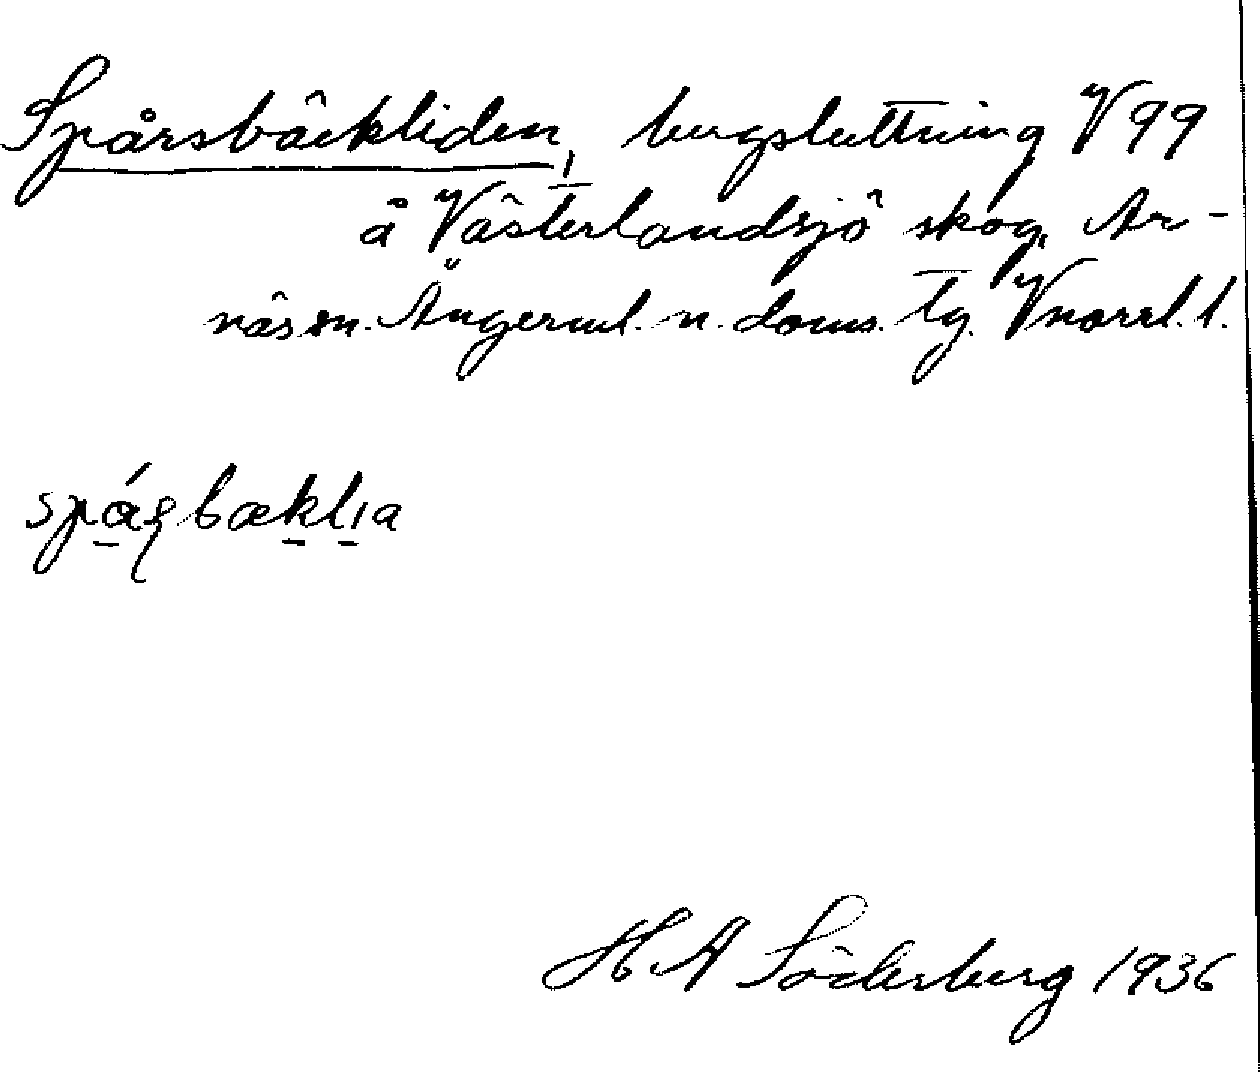 Spårsbäckliden, bergsluttning V 99
å Västerlandsjö skog, Ar-
näs sn. Ångerml. n. doms. tg. Vnorrl. l.
spáʂbæklıa
H. A Söderberg 1936